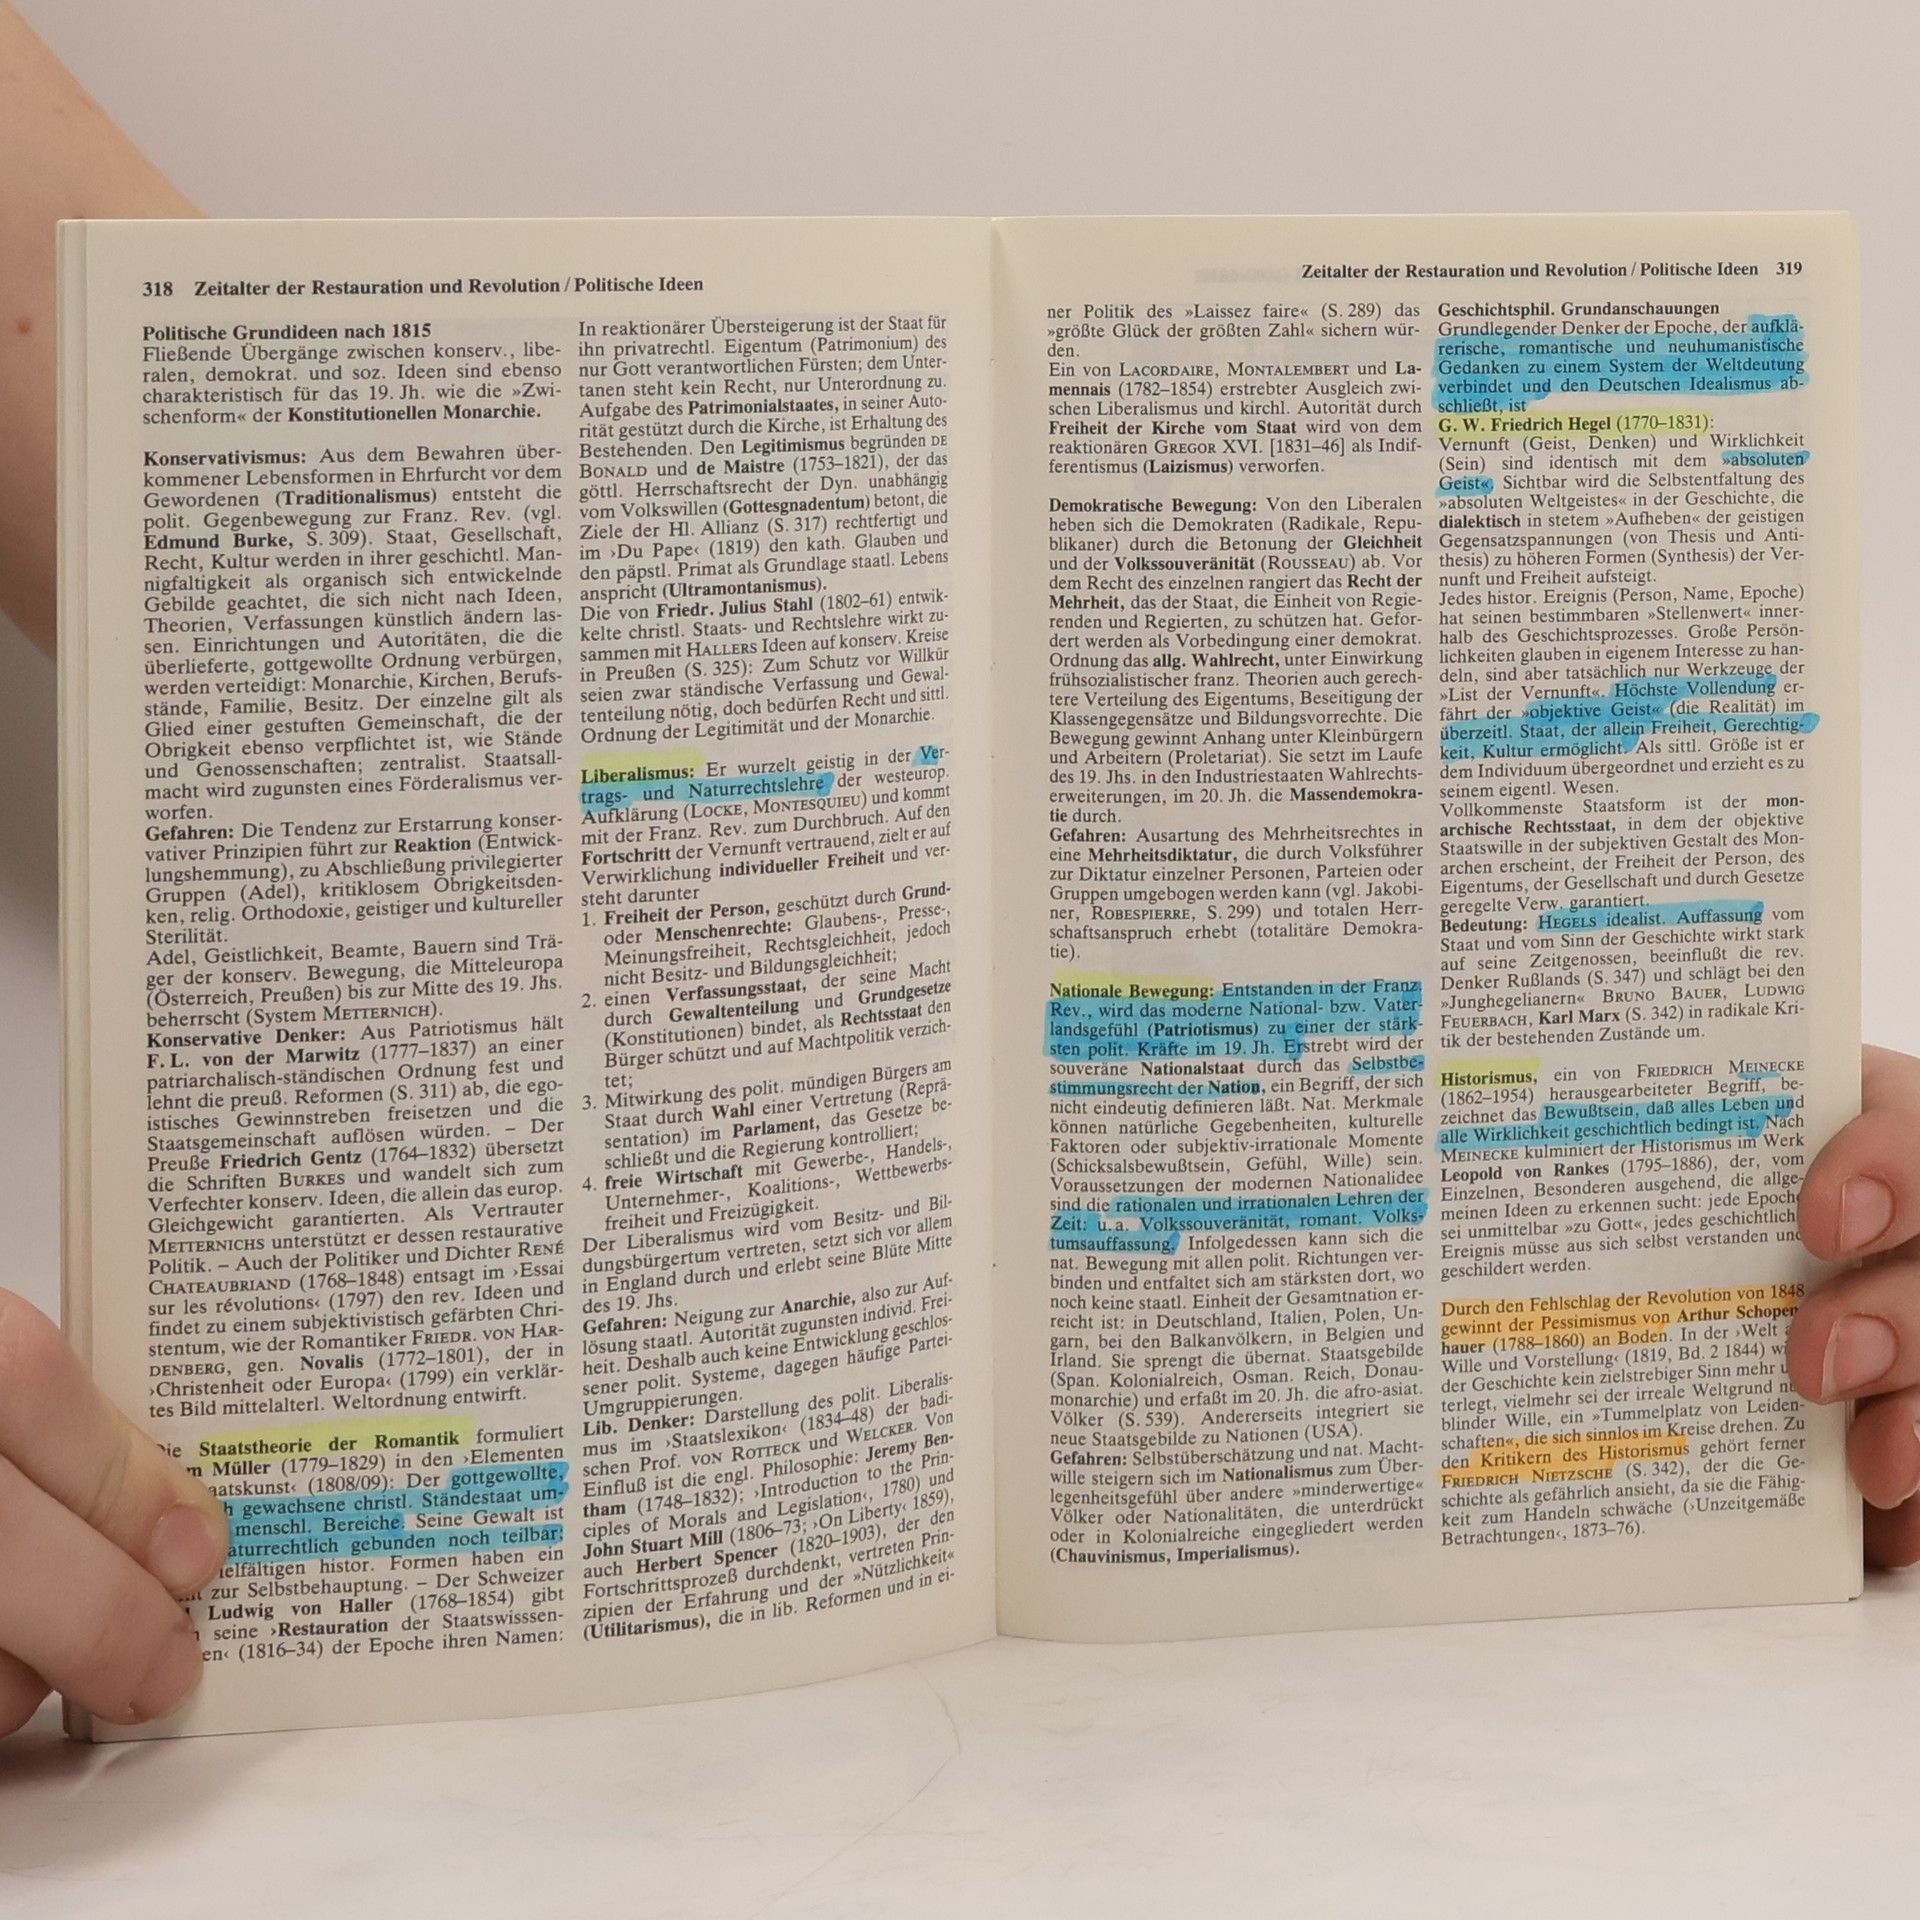 318 Zeitalter der Restauration und Revolution / Politische Ideen
Politische Grundideen nach 1815
Fließende Übergänge zwischen konserv., libe-
ralen, demokrat. und soz. Ideen sind ebenso
charakteristisch für das 19. Jh. wie die »Zwi-
schenform« der Konstitutionellen Monarchie.
Konservativismus: Aus dem Bewahren über-
kommener Lebensformen in Ehrfurcht vor dem
Gewordenen (Traditionalismus) entsteht die
polit. Gegenbewegung zur Franz. Rev. (vgl.
Edmund Burke, S. 309). Staat, Gesellschaft,
Recht, Kultur werden in ihrer geschichtl. Man-
nigfaltigkeit als organisch sich entwickelnde
Gebilde geachtet, die sich nicht nach Ideen,
Theorien, Verfassungen künstlich ändern las-
sen. Einrichtungen und Autoritäten, die die
überlieferte, gottgewollte Ordnung verbürgen,
werden verteidigt: Monarchie, Kirchen, Berufs-
stände, Familie, Besitz. Der einzelne gilt als
Glied einer gestuften Gemeinschaft, die der
Obrigkeit ebenso verpflichtet ist, wie Stände
und Genossenschaften; zentralist. Staatsall-
macht wird zugunsten eines Förderalismus ver-
worfen.
Gefahren: Die Tendenz zur Erstarrung konser-
vativer Prinzipien führt zur Reaktion (Entwick-
lungshemmung), zu Abschließung privilegierter
Gruppen (Adel), kritiklosem Obrigkeitsden-
ken, relig. Orthodoxie, geistiger und kultureller
Sterilität.
Adel, Geistlichkeit, Beamte, Bauern sind Trä-
ger der konserv. Bewegung, die Mitteleuropa
(Österreich, Preußen) bis zur Mitte des 19. Jhs.
beherrscht (System METTERNICH).
Konservative Denker: Aus Patriotismus hält
F. L. von der Marwitz (1777–1837) an einer
patriarchalisch-ständischen Ordnung fest und
lehnt die preuß. Reformen (S. 311) ab, die ego-
istisches Gewinnstreben freisetzen und die
Staatsgemeinschaft auflösen würden. – Der
Preuße Friedrich Gentz (1764–1832) übersetzt
die Schriften BURKES und wandelt sich zum
Verfechter konserv. Ideen, die allein das europ.
Gleichgewicht garantierten. Als Vertrauter
METTERNICHS unterstützt er dessen restaurative
Politik. – Auch der Politiker und Dichter RENÉ
CHATEAUBRIAND (1768–1848) entsagt im ›Essai
sur les révolutions‹ (1797) den rev. Ideen und
findet zu einem subjektivistisch gefärbten Chri-
stentum, wie der Romantiker FRIEDR. VON HAR-
DENBERG, gen. Novalis (1772–1801), der in
›Christenheit oder Europa‹ (1799) ein verklär-
tes Bild mittelalterl. Weltordnung entwirft.
Staatstheorie der Romantik formuliert
Müller (1779–1829) in den ›Elementen
(1808/09): Der gottgewollte,
gewachsene christl. Ständestaat um-
menschl. Bereiche. Seine Gewalt ist
gebunden noch teilbar;
histor. Formen haben ein
zur Selbstbehauptung. – Der Schweizer
Ludwig von Haller (1768–1854) gibt
seine ›Restauration der Staatswisssen-
(1816–34) der Epoche ihren Namen:
In reaktionärer Übersteigerung ist der Staat für
ihn privatrechtl. Eigentum (Patrimonium) des
nur Gott verantwortlichen Fürsten; dem Unter-
tanen steht kein Recht, nur Unterordnung zu.
Aufgabe des Patrimonialstaates, in seiner Auto-
rität gestützt durch die Kirche, ist Erhaltung des
Bestehenden. Den Legitimismus begründen DE
BONALD und de Maistre (1753–1821), der das
göttl. Herrschaftsrecht der Dyn. unabhängig
vom Volkswillen (Gottesgnadentum) betont, die
Ziele der Hl. Allianz (S. 317) rechtfertigt und
im ›Du Pape‹ (1819) den kath. Glauben und
den päpstl. Primat als Grundlage staatl. Lebens
anspricht (Ultramontanismus).
Die von Friedr. Julius Stahl (1802–61) entwik-
kelte christl. Staats- und Rechtslehre wirkt zu-
sammen mit HALLERS Ideen auf konserv. Kreise
in Preußen (S. 325): Zum Schutz vor Willkür
seien zwar ständische Verfassung und Gewal-
tenteilung nötig, doch bedürfen Recht und sittl.
Ordnung der Legitimität und der Monarchie.
Liberalismus: Er wurzelt geistig in der Ver-
trags- und Naturrechtslehre der westeurop.
Aufklärung (LOCKE, MONTESQUIEU) und kommt
mit der Franz. Rev. zum Durchbruch. Auf den
Fortschritt der Vernunft vertrauend, zielt er auf
Verwirklichung individueller Freiheit und ver-
steht darunter
1. Freiheit der Person, geschützt durch Grund-
oder Menschenrechte: Glaubens-, Presse-,
Meinungsfreiheit, Rechtsgleichheit, jedoch
nicht Besitz- und Bildungsgleichheit;
2. einen Verfassungsstaat, der seine Macht
durch Gewaltenteilung und Grundgesetze
(Konstitutionen) bindet, als Rechtsstaat den
Bürger schützt und auf Machtpolitik verzich-
tet;
3. Mitwirkung des polit. mündigen Bürgers am
Staat durch Wahl einer Vertretung (Reprä-
sentation) im Parlament, das Gesetze be-
schließt und die Regierung kontrolliert;
4. freie Wirtschaft mit Gewerbe-, Handels-,
Unternehmer-, Koalitions-, Wettbewerbs-
freiheit und Freizügigkeit.
Der Liberalismus wird vom Besitz- und Bil-
dungsbürgertum vertreten, setzt sich vor allem
in England durch und erlebt seine Blüte Mitte
des 19. Jhs.
Gefahren: Neigung zur Anarchie, also zur Auf-
lösung staatl. Autorität zugunsten individ. Frei-
heit. Deshalb auch keine Entwicklung geschlos-
sener polit. Systeme, dagegen häufige Partei-
Umgruppierungen.
Lib. Denker: Darstellung des polit. Liberalis-
mus im ›Staatslexikon‹ (1834–48) der badi-
schen Prof. VON ROTTECK und WELCKER. Von
Einfluß ist die engl. Philosophie: Jeremy Ben-
tham (1748–1832); ›Introduction to the Prin-
ciples of Morals and Legislation‹, 1780) und
John Stuart Mill (1806–73; ›On Liberty‹ 1859),
auch Herbert Spencer (1820–1903), der den
Fortschrittsprozeß durchdenkt, vertreten Prin-
zipien der Erfahrung und der »Nützlichkeit«
(Utilitarismus), die in lib. Reformen und in ei-
Zeitalter der Restauration und Revolution / Politische Ideen 319
ner Politik des »Laissez faire« (S. 289) das
»größte Glück der größten Zahl« sichern wür-
den.
Ein von LACORDAIRE, MONTALEMBERT und La-
mennais (1782–1854) erstrebter Ausgleich zwi-
schen Liberalismus und kirchl. Autorität durch
Freiheit der Kirche vom Staat wird von dem
reaktionären GREGOR XVI. [1831–46] als Indif-
ferentismus (Laizismus) verworfen.
Demokratische Bewegung: Von den Liberalen
heben sich die Demokraten (Radikale, Repu-
blikaner) durch die Betonung der Gleichheit
und der Volkssouveränität (ROUSSEAU) ab. Vor
dem Recht des einzelnen rangiert das Recht der
Mehrheit, das der Staat, die Einheit von Regie-
renden und Regierten, zu schützen hat. Gefor-
dert werden als Vorbedingung einer demokrat.
Ordnung das allg. Wahlrecht, unter Einwirkung
frühsozialistischer franz. Theorien auch gerech-
tere Verteilung des Eigentums, Beseitigung der
Klassengegensätze und Bildungsvorrechte. Die
Bewegung gewinnt Anhang unter Kleinbürgern
und Arbeitern (Proletariat). Sie setzt im Laufe
des 19. Jhs. in den Industriestaaten Wahlrechts-
erweiterungen, im 20. Jh. die Massendemokra-
tie durch.
Gefahren: Ausartung des Mehrheitsrechtes in
eine Mehrheitsdiktatur, die durch Volksführer
zur Diktatur einzelner Personen, Parteien oder
Gruppen umgebogen werden kann (vgl. Jakobi-
ner, ROBESPIERRE, S. 299) und totalen Herr-
schaftsanspruch erhebt (totalitäre Demokra-
tie).
Nationale Bewegung: Entstanden in der Franz.
Rev., wird das moderne National- bzw. Vater-
landsgefühl (Patriotismus) zu einer der stärk-
sten polit. Kräfte im 19. Jh. Erstrebt wird der
souveräne Nationalstaat durch das Selbstbe-
stimmungsrecht der Nation, ein Begriff, der sich
nicht eindeutig definieren läßt. Nat. Merkmale
können natürliche Gegebenheiten, kulturelle
Faktoren oder subjektiv-irrationale Momente
(Schicksalsbewußtsein, Gefühl, Wille) sein.
Voraussetzungen der modernen Nationalidee
sind die rationalen und irrationalen Lehren der
Zeit: u. a. Volkssouveränität, romant. Volks-
tumsauffassung. Infolgedessen kann sich die
nat. Bewegung mit allen polit. Richtungen ver-
binden und entfaltet sich am stärksten dort, wo
noch keine staatl. Einheit der Gesamtnation er-
reicht ist: in Deutschland, Italien, Polen, Un-
garn, bei den Balkanvölkern, in Belgien und
Irland. Sie sprengt die übernat. Staatsgebilde
(Span. Kolonialreich, Osman. Reich, Donau-
monarchie) und erfaßt im 20. Jh. die afro-asiat.
Völker (S. 539). Andererseits integriert sie
neue Staatsgebilde zu Nationen (USA).
Gefahren: Selbstüberschätzung und nat. Macht-
wille steigern sich im Nationalismus zum Über-
legenheitsgefühl über andere »minderwertige«
Völker oder Nationalitäten, die unterdrückt
oder in Kolonialreiche eingegliedert werden
(Chauvinismus, Imperialismus).
Geschichtsphil. Grundanschauungen
Grundlegender Denker der Epoche, der aufklä-
rerische, romantische und neuhumanistische
Gedanken zu einem System der Weltdeutung
verbindet und den Deutschen Idealismus ab-
schließt, ist
G. W. Friedrich Hegel (1770–1831):
Vernunft (Geist, Denken) und Wirklichkeit
(Sein) sind identisch mit dem »absoluten
Geist«. Sichtbar wird die Selbstentfaltung des
»absoluten Weltgeistes« in der Geschichte, die
dialektisch in stetem »Aufheben« der geistigen
Gegensatzspannungen (von Thesis und Anti-
thesis) zu höheren Formen (Synthesis) der Ver-
nunft und Freiheit aufsteigt.
Jedes histor. Ereignis (Person, Name, Epoche)
hat seinen bestimmbaren »Stellenwert« inner-
halb des Geschichtsprozesses. Große Persön-
lichkeiten glauben in eigenem Interesse zu han-
deln, sind aber tatsächlich nur Werkzeuge der
»List der Vernunft«. Höchste Vollendung er-
fährt der »objektive Geist« (die Realität) im
überzeitl. Staat, der allein Freiheit, Gerechtig-
keit, Kultur ermöglicht. Als sittl. Größe ist er
dem Individuum übergeordnet und erzieht es zu
seinem eigentl. Wesen.
Vollkommenste Staatsform ist der mon-
archische Rechtsstaat, in dem der objektive
Staatswille in der subjektiven Gestalt des Mon-
archen erscheint, der Freiheit der Person, des
Eigentums, der Gesellschaft und durch Gesetze
geregelte Verw. garantiert.
Bedeutung: HEGELS idealist. Auffassung vom
Staat und vom Sinn der Geschichte wirkt stark
auf seine Zeitgenossen, beeinflußt die rev.
Denker Rußlands (S. 347) und schlägt bei den
»Junghegelianern« BRUNO BAUER, LUDWIG
FEUERBACH, Karl Marx (S. 342) in radikale Kri-
tik der bestehenden Zustände um.
Historismus, ein von FRIEDRICH MEINECKE
(1862–1954) herausgearbeiteter Begriff, be-
zeichnet das Bewußtsein, daß alles Leben und
alle Wirklichkeit geschichtlich bedingt ist. Nach
MEINECKE kulminiert der Historismus im Werk
Leopold von Rankes (1795–1886), der, vom
Einzelnen, Besonderen ausgehend, die allge-
meinen Ideen zu erkennen sucht: jede Epoche
sei unmittelbar »zu Gott«, jedes geschichtlich
Ereignis müsse aus sich selbst verstanden und
geschildert werden.
Durch den Fehlschlag der Revolution von 1848
gewinnt der Pessimismus von Arthur Schopen-
hauer (1788–1860) an Boden. In der ›Welt
Wille und Vorstellung‹ (1819, Bd. 2 1844)
der Geschichte kein zielstrebiger Sinn mehr
terlegt, vielmehr sei der irreale Weltgrund
blinder Wille, ein »Tummelplatz von Leiden-
schaften«, die sich sinnlos im Kreise drehen. Zu
den Kritikern des Historismus gehört ferner
FRIEDRICH NIETZSCHE (S. 342), der die Ge-
schichte als gefährlich ansieht, da sie die Fähig-
keit zum Handeln schwäche (›Unzeitgemäße
Betrachtungen‹, 1873–76).